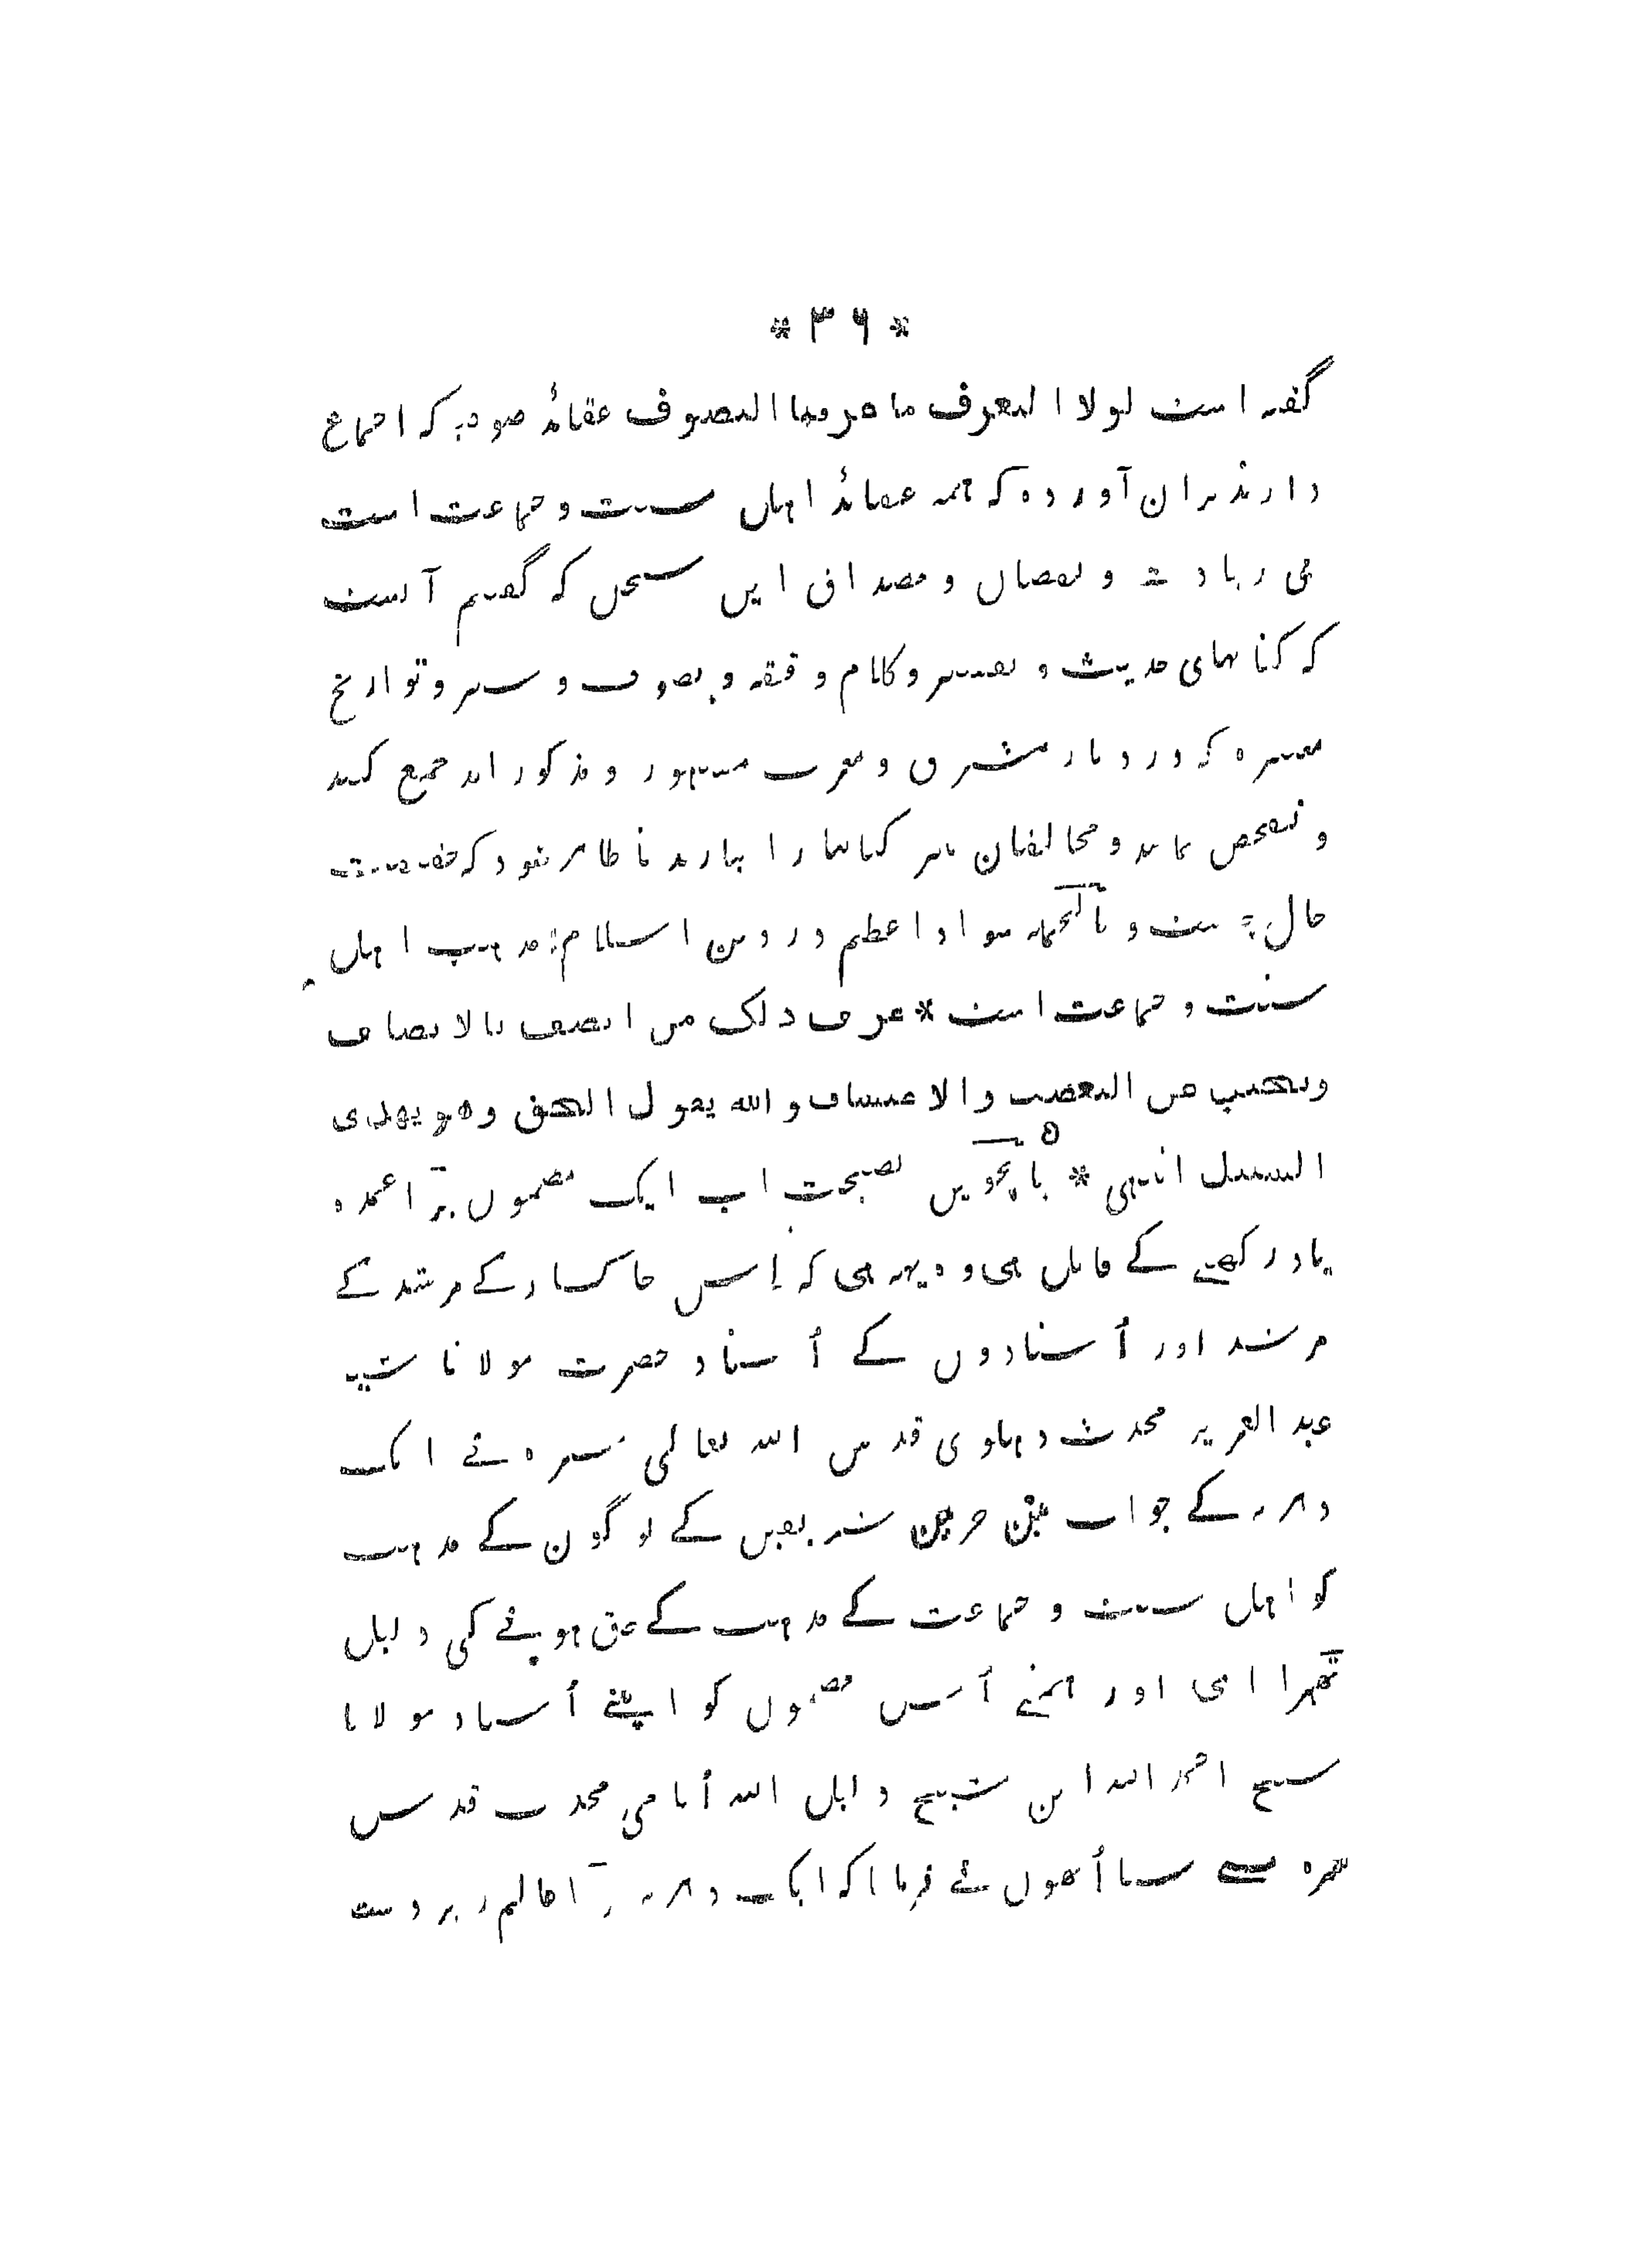 * ۳۶ *
گفته است لولا التعرف ما عرفنا التصوف عقائد صوفیہ کہ اجماع
دارند بران آوردہ کہ ہمہ عقائد اہل سنت و جماعت است
بی زیادت و نقصان و مصداق این سخن کہ گفتیم آنست
کہ کتابهای حدیث و تفسیر و کلام و فقہ و تصوف و سیر و تواریخ
معتبرہ کہ در دیار مشرق و مغرب مشہور و مذکور اند جمع کنند
و تفحص نمایند و مخالفان نیز کتابها را بیارند تا ظاہر شود کہ حقیقت
حال چیست و بالجملہ سواد اعظم در دین اسلام مذہب اہل
سنت و جماعت است * عرف ذلک من انصف بالانصاف
وتجنب عن التعصب والاعتساف والله يقول الحق وهو يهدى
السبيل انتہی * پانچویں نصیحت اب ایک مضمون بڑا عمدہ
یاد رکھنے کے قابل ہی وہ یہہ ہی کہ اِس خاکسار کے مرشد کے
مرشد اور اُستادوں کے اُستاد حضرت مولانا شیخ
عبد العزیز محدث دہلوی قدس اللہ تعالی سرہ نے ایک
دہریہ کے جواب میں حرمین شریفین کے لوگون کے مذہب
کو اہل سنت و جماعت کے مذہب کے حق ہونے کی دلیل
تھہرایا ہی اور ہمنے اُس مضمون کو اپنے اُستاد مولانا
شیخ احمد اللہ ابن شیخ دلیل اللہ انامی محدث قدس
سرہ سے سنا اُنھوں نے فرمایا کہ ایک دہریہ بڑا ظالم زبردست